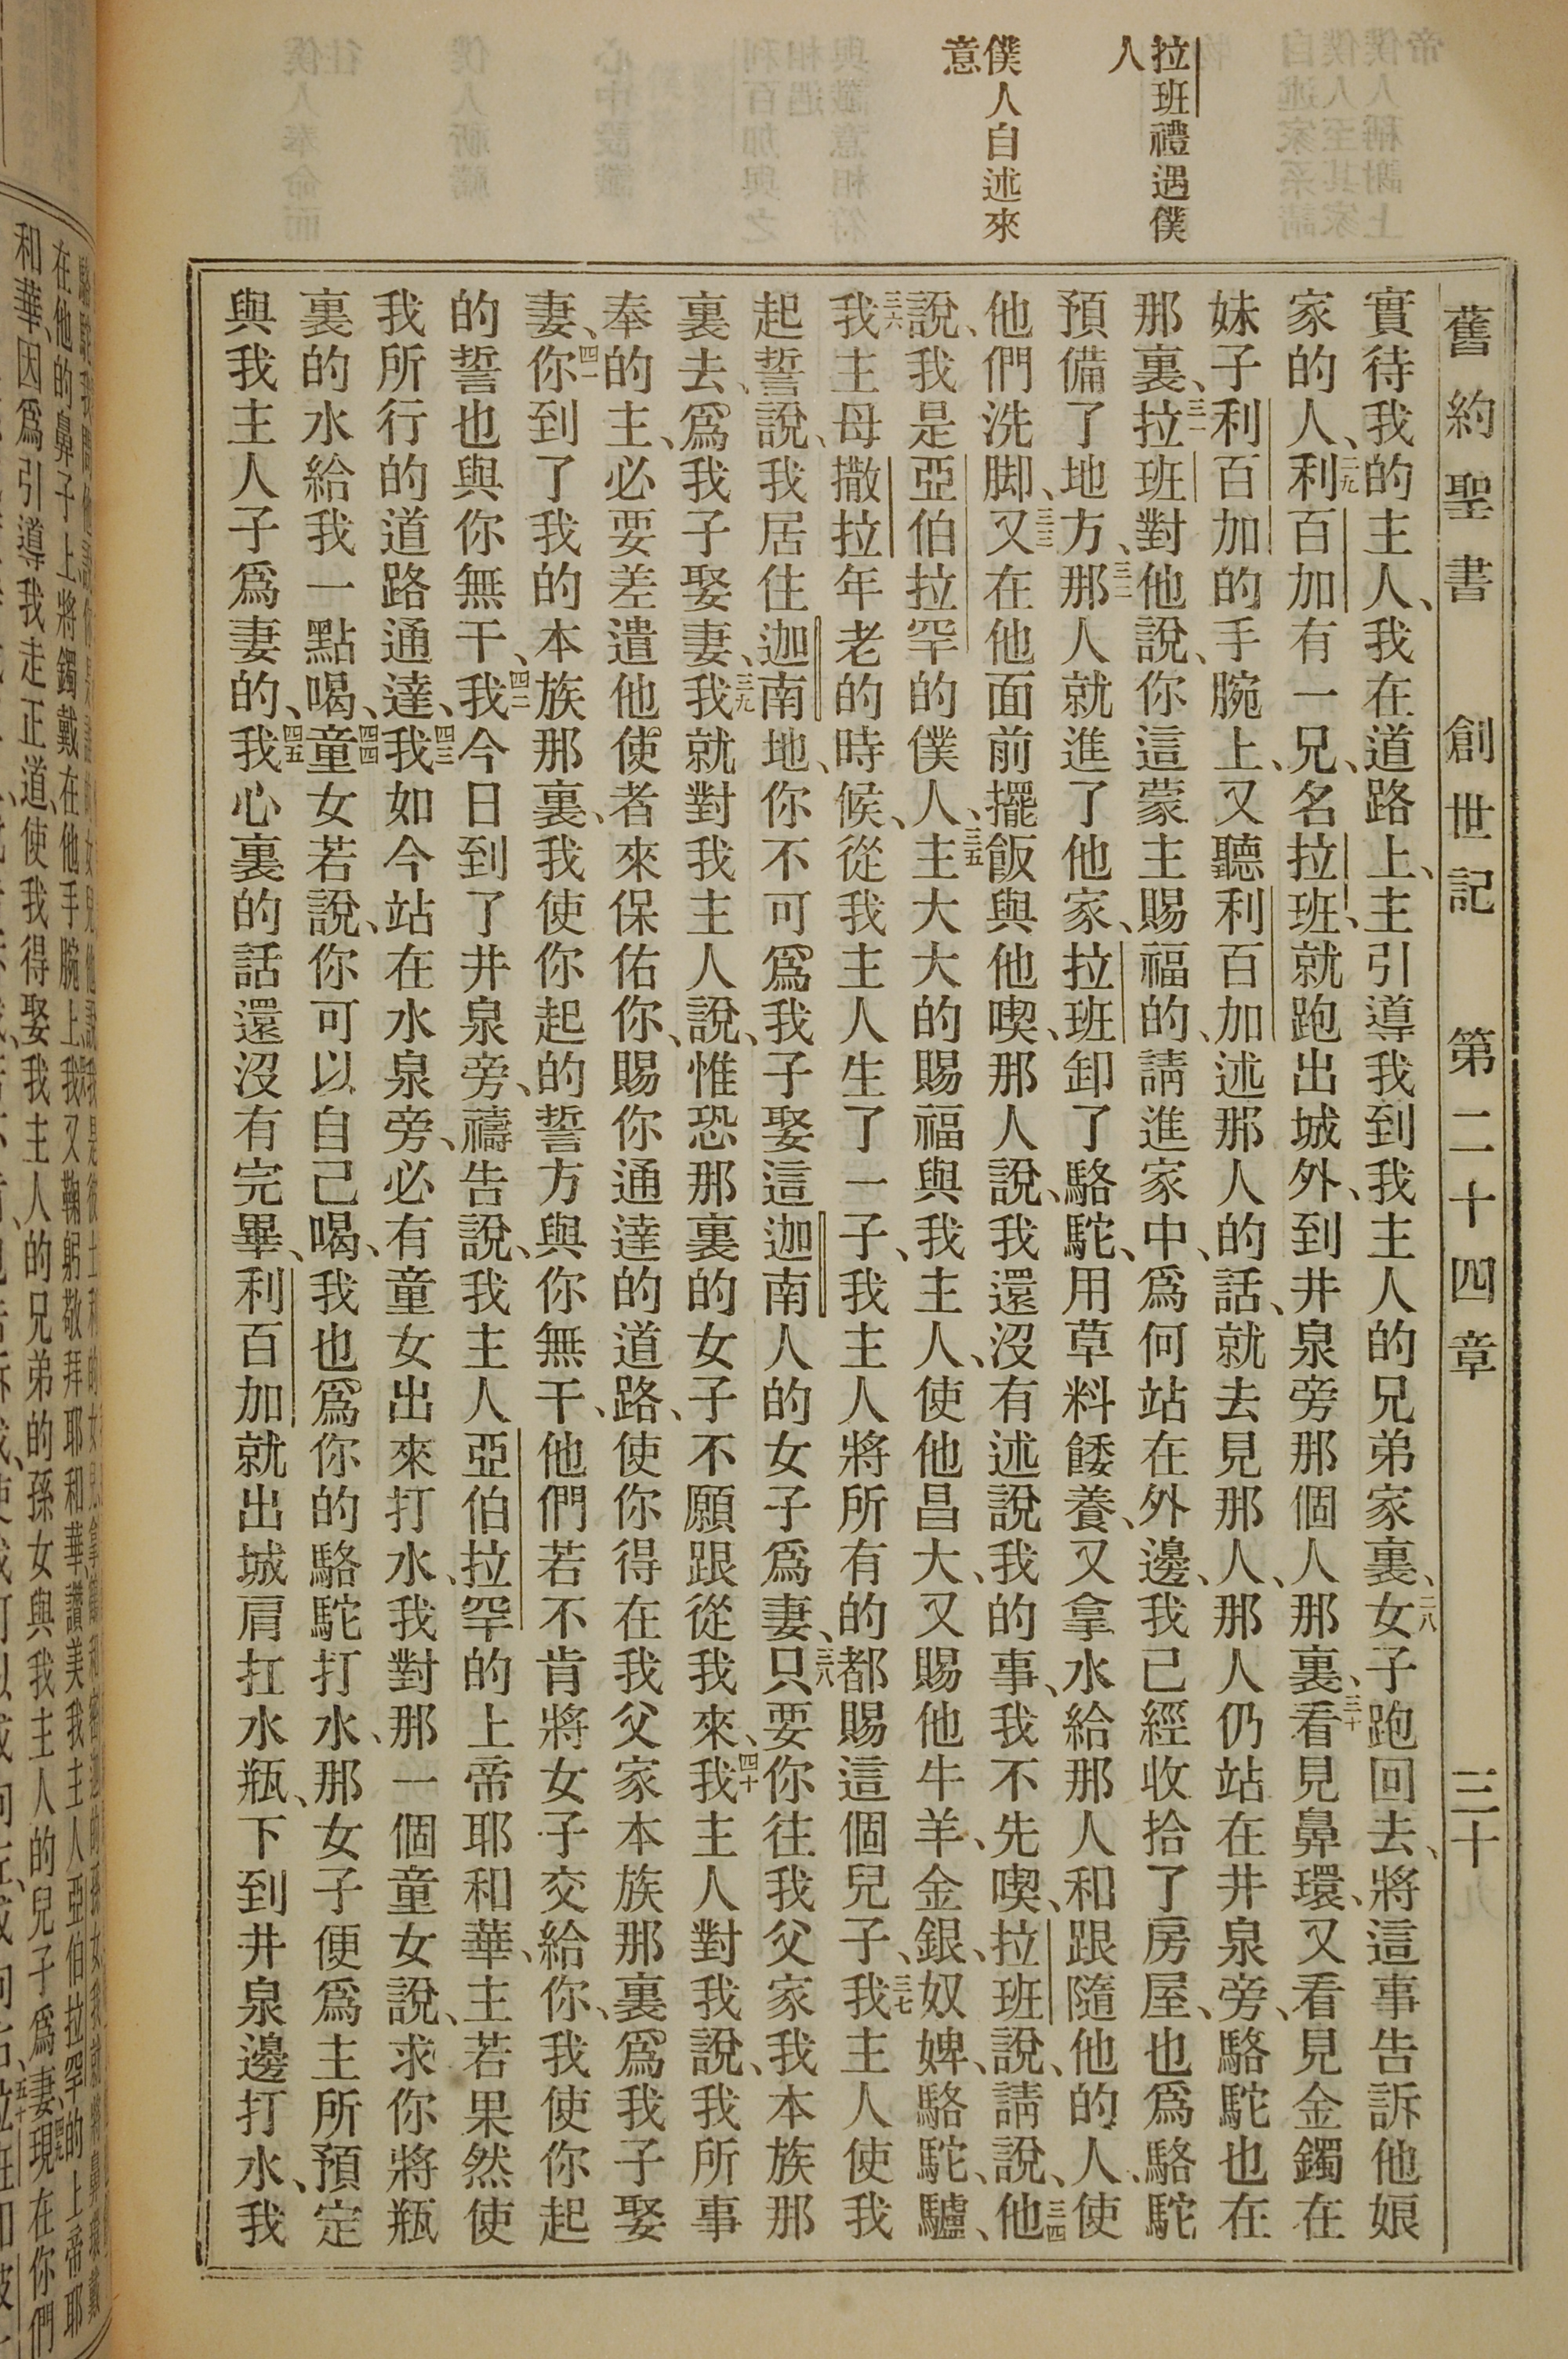 舊約聖書　創世記　第二十四章　三十
拉班禮遇僕人
僕人自述來意
實待我的主人、我在道路上、主引導我到我主人的兄弟家裏、二八女子跑回去、將這事告訴他娘
家的人、二九利百加有一兄、名拉班、就跑出城外、到井泉旁那個人那裏、三十看見鼻環、又看見金鐲在
妹子利百加的手腕上、又聽利百加述那人的話、就去見那人、那人仍站在井泉旁、駱駝也在
那裏、三一拉班對他說、你這蒙主賜福的、請進家中、爲何站在外邊、我已經收拾了房屋、也爲駱駝
預備了地方、三二那人就進了他家、拉班卸了駱駝、用草料餧養、又拿水給那人和跟隨他的人、使
他們洗脚、三三又在他面前擺飯與他喫、那人說、我還沒有述說我的事、我不先喫、拉班說、請說、三四他
說、我是亞伯拉罕的僕人、三五主大大的賜福與我主人、使他昌大、又賜他牛羊、金銀、奴婢、駱駝、驢、
三六我主母撒拉年老的時候、從我主人生了一子、我主人將所有的都賜這個兒子、三七我主人使我
起誓說、我居住迦南地、你不可爲我子娶這迦南人的女子爲妻、三八只要你往我父家我本族那
裏去、爲我子娶妻、三九我就對我主人說、惟恐那裏的女子不願跟從我來、四十我主人對我說、我所事
奉的主、必要差遣他使者來保佑你、賜你通達的道路、使你得在我父家本族那裏爲我子娶
妻、四一你到了我的本族那裏、我使你起的誓方與你無干、他們若不肯將女子交給你、我使你起
的誓也與你無干、四二我今日到了井泉旁、禱告說、我主人亞伯拉罕的上帝耶和華、主若果然使
我所行的道路通達、四三我如今站在水泉旁、必有童女出來打水、我對那一個童女說、求你將瓶
裏的水給我一點喝、四四童女若說、你可以自己喝、我也爲你的駱駝打水、那女子便爲主所預定
與我主人子爲妻的、四五我心裏的話還沒有完畢、利百加就出城肩扛水瓶、下到井泉邊打水、我
和華、因爲引導我走正道、使我得娶我主人的兄弟的孫女與我主人的兒子爲妻、現在你們